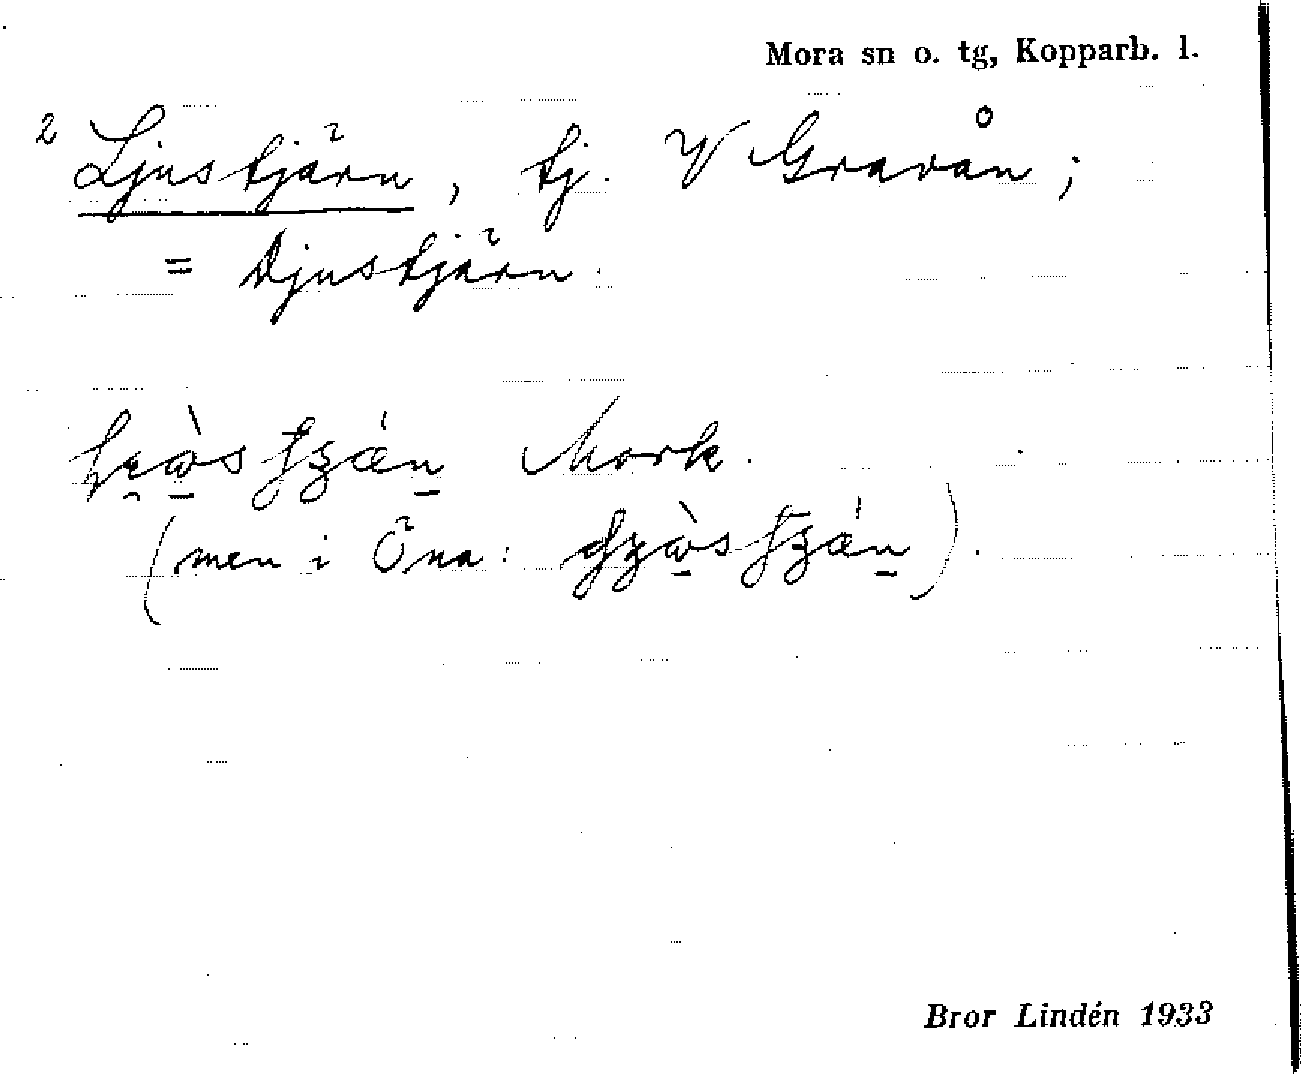 Mora sn o. tg, Kopparb. l.
2 Ljustjärn, tj. V Gravån;
= Djustjärn.
Mork.
(men i Öna: ).
Bror Lindén 1933